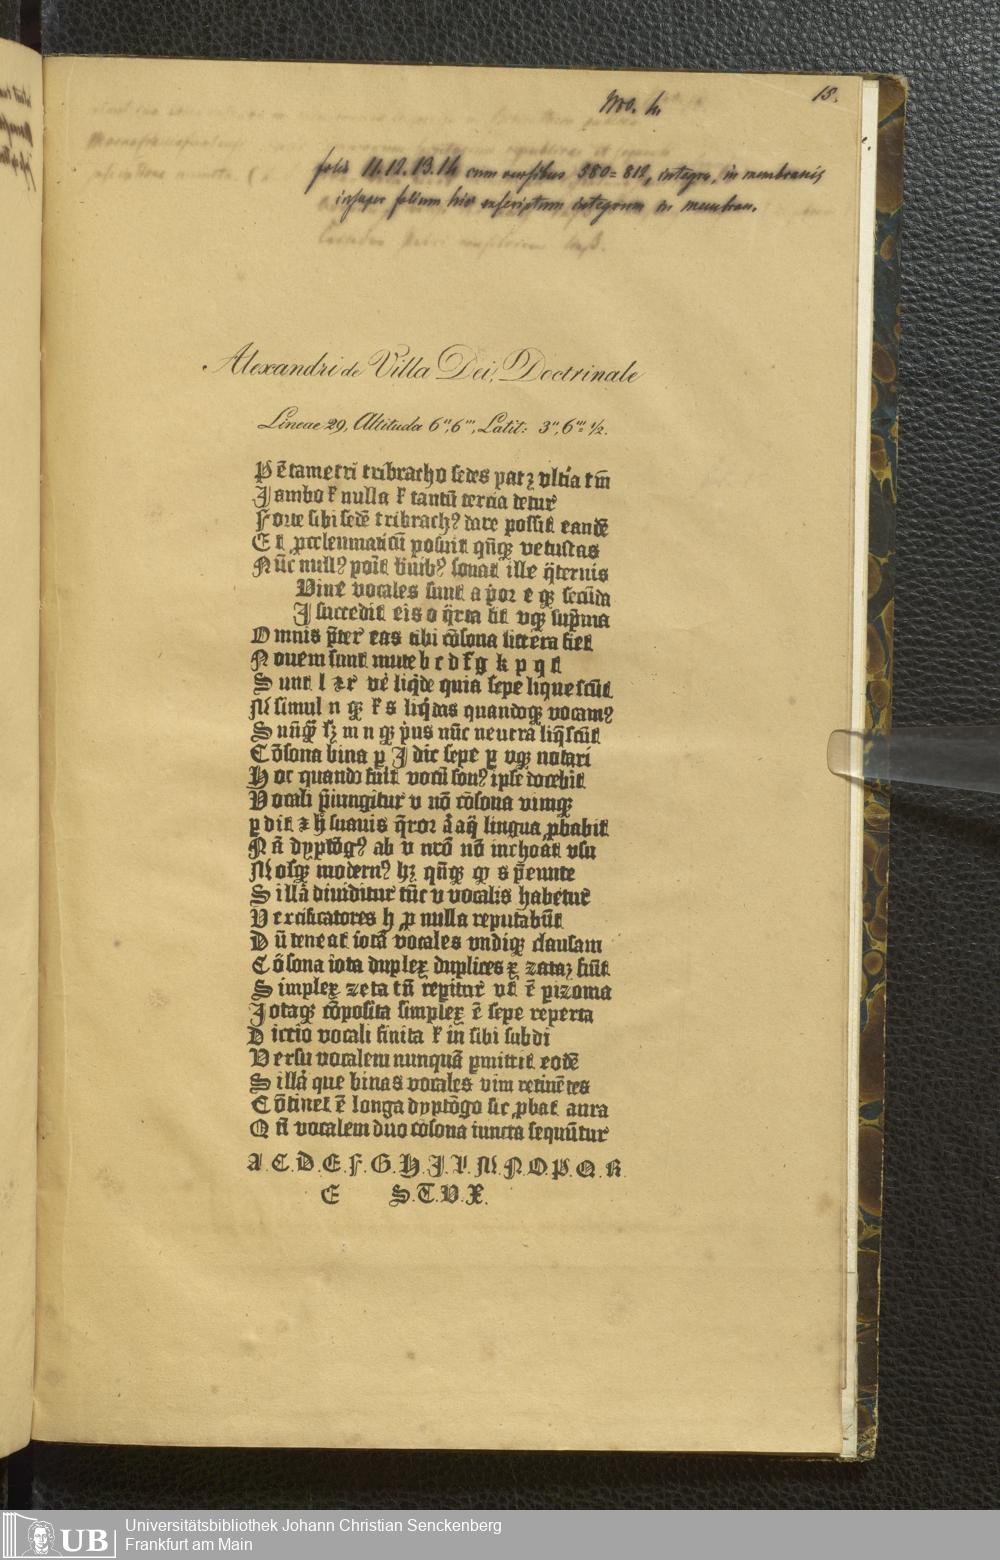 15.
No. 4.
folia 11.12.13.14 cum versibus 580=812, integra, in membranis
insuper folium hic inscriptum integrum in membran.
Alexandri de Villa Dei, Doctrinale
Lineae 29, Altituda 6", 6"', Latit: 3", 6"'= 1/2.
Pētametri tribracho sedes patꝫ vltia tm̄
Jambo ⁊ nulla ⁊ tantū tercia detur
Forte sibi sedē tribrachꝰ dare possit eandē
Et ꝓceleumaticū posuit qn̄qꝫ vetustas
Nūc nullꝰ poīt sonat ille q̄ternis
Uine vocales sunt a por e qꝫ secūda
J succedit eis o q̄rta vqꝫ sup̄ma
Omnis p̄ter eas tibi cōsona littera fiet
Nouem sunt mute b c d f g k p q t
Sunt l ⁊ r liq̄de quia sepe liquescūt
M simul n qꝫ f s liq̄das quandoqꝫ vocamꝰ
m n qꝫ nūc neutra liq̄scūt
Cōsona bina p J dic sepe p vqꝫ notari
Hoc quando vocū sonꝰ ipse docebit
Vocali p̄iungitur v nō cōsona vimqꝫ
ꝑdit ⁊ suauis q̄ror aq̄ lingua ꝓbabit
Nā dyptōgꝰ ab v nō inchoat vsu
Mosqꝫ modernꝰ hꝫ qn̄qꝫ s p̄eunte
Sillā diuiditur tūc v vocalis habetur
Versificatores h ꝓ nulla reputabūt
Dū teneat iotā vocales vndiqꝫ clausam
Cōsona iota duplex duplices x zataꝫ fiūt
Simplex zeta tn̄ reꝑitur vt ē ꝑizoma
Jotaqꝫ cōposita simplex ē sepe reperta
Dictio vocali finita ⁊ in sibi subdi
Versu vocalem nunquā ꝑmittit eodē
Sillā que binas vocales vim retinētes
Cōtinet ē longa dyptōgo sic ꝓbat aura
Qn̄ vocalem duo cōsona iuncta sequūtur
A.C.D.E.F.G.H.J.L.M.N.O.P.Q.R.
E S.T.V.X.
UB
Universitätsbibliothek Johann Christian Senckenberg
Frankfurt am Main